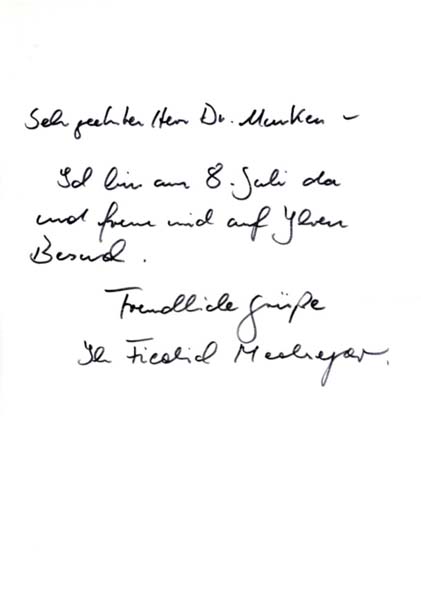 Sehr geehrter Herr Dr. Munken –
Ich bin am 8. Juli da
und freue mich auf Ihren
Besuch.
Freundliche Grüße
Ihr